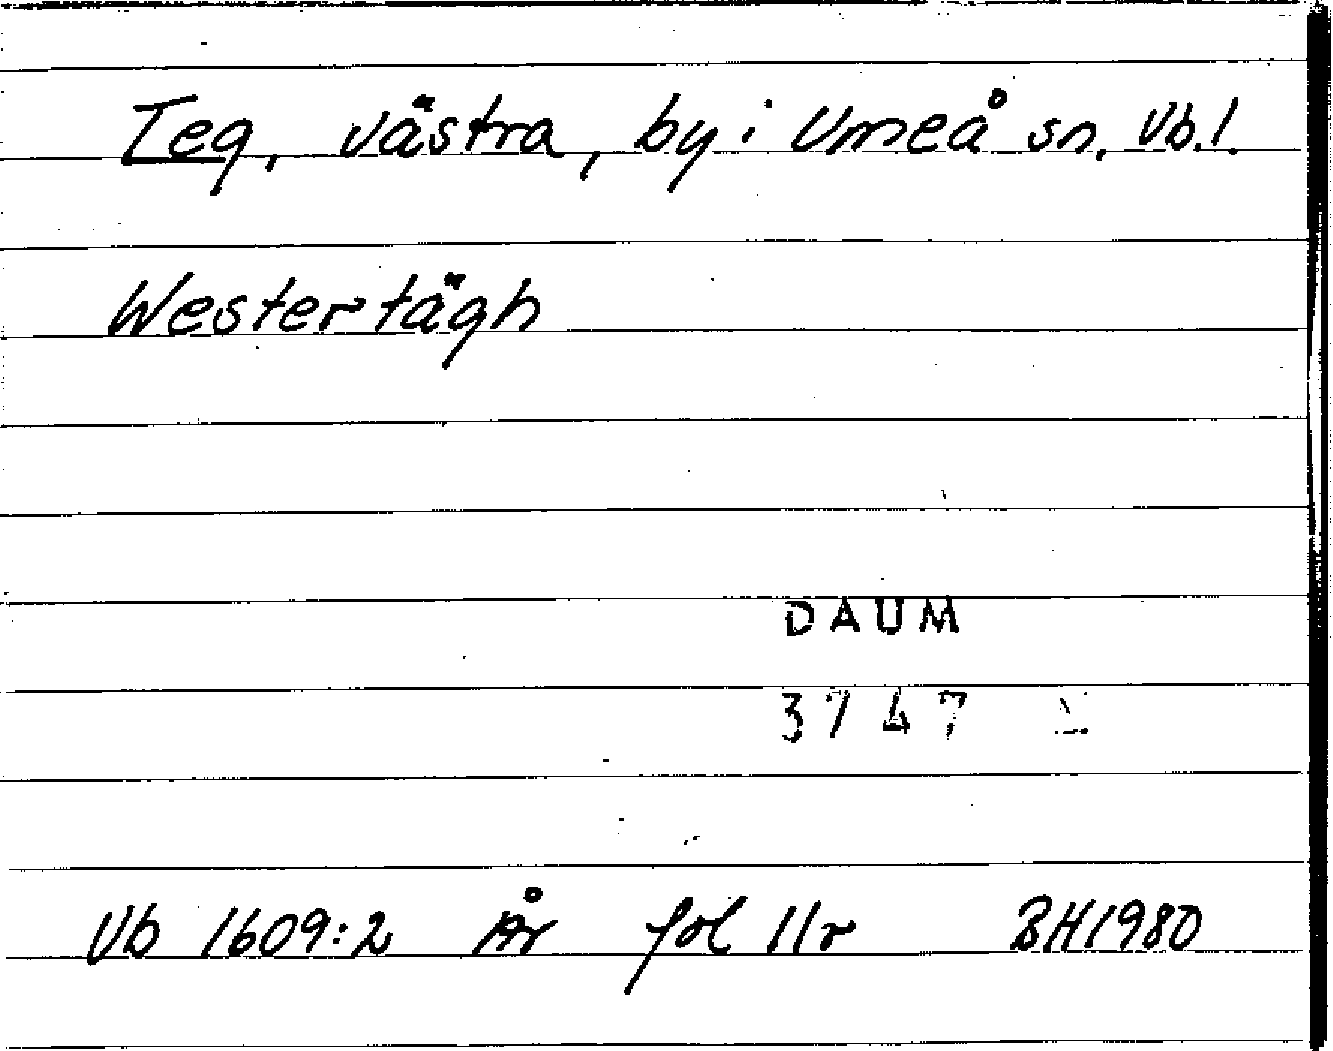 Teg, västra, by i Umeå sn, Vb.l.
Westertägh
DAUM
3747
Vb 1609:2 År fol 11r BH1980